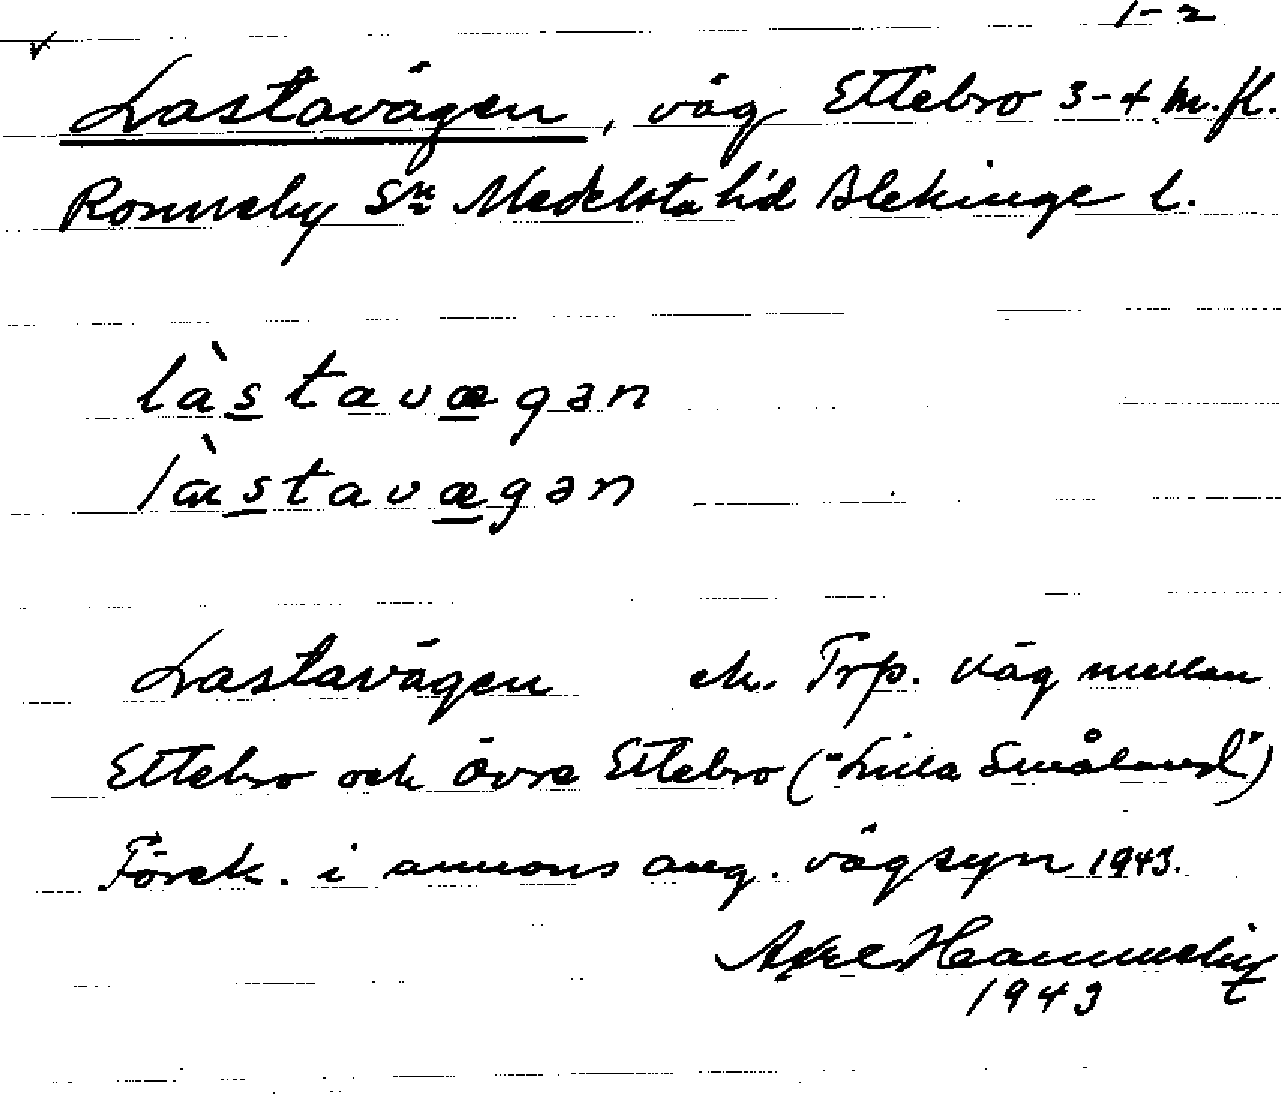 1-2
Lastavägen, väg Ettebro 3-4 m.fl.
Ronneby Sn Medelsta hd Blekinge l.
làstavægən
làstavægən
Lastavägen ek. Trp. Väg mellan
Ettebro och Övre Ettebro ("Lilla Småland")
Förek. i annons ang. vägsyn 1943.
Axel Hammneby
1943